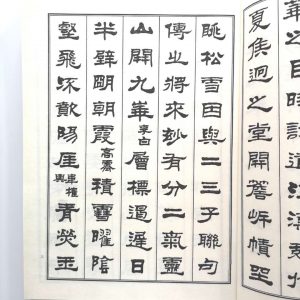 華之目
夏侯迴之堂開簷岸幘坐
眺松雪因與二三子聯句
傳之將來妙有分二氣靈
山開九華李白層標遏遲日
半壁明朝霞高霽積雪曜陰
壑飛流歕陽崖韋權輿青熒玉